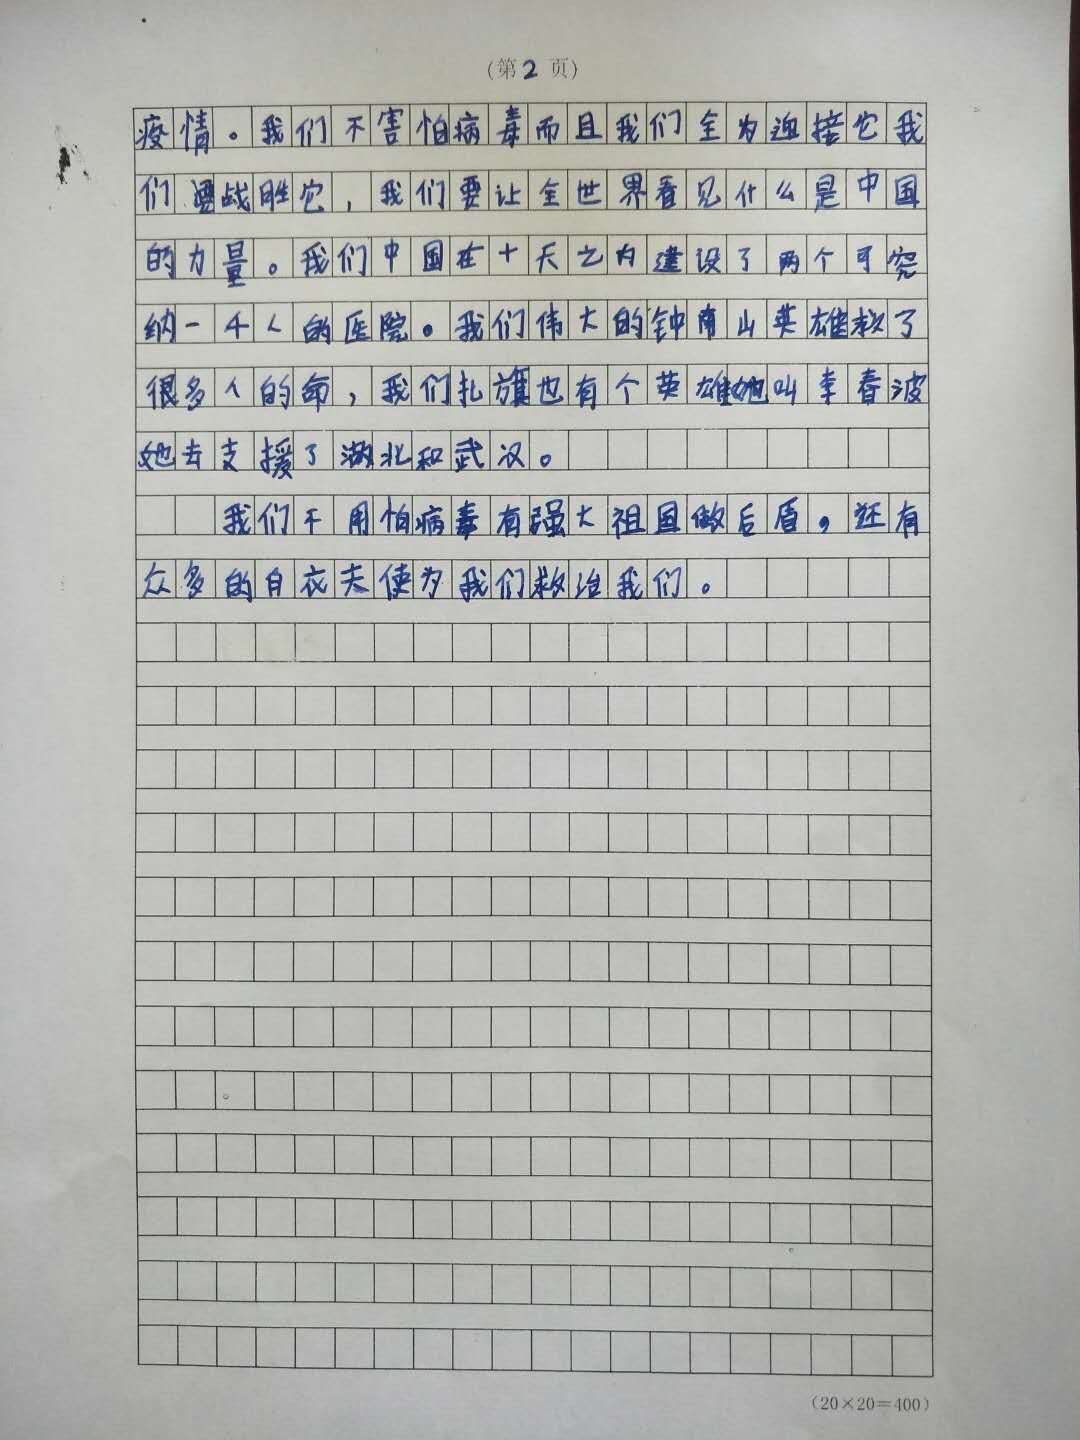 (第2页)
疫情。我们不害怕病毒而且我们全为迎接它我
们要战胜它，我们要让全世界看见什么是中国
的力量。我们中国在十天之内建设了两个可容
纳一千人的医院。我们伟大的钟南山英雄救了
很多人的命，我们扎旗也有个英雄她叫李春波
她去支援了湖北和武汉。
我们不用怕病毒有强大祖国做后盾，还有
众多的白衣天使为我们救治我们。
(20×20=400)